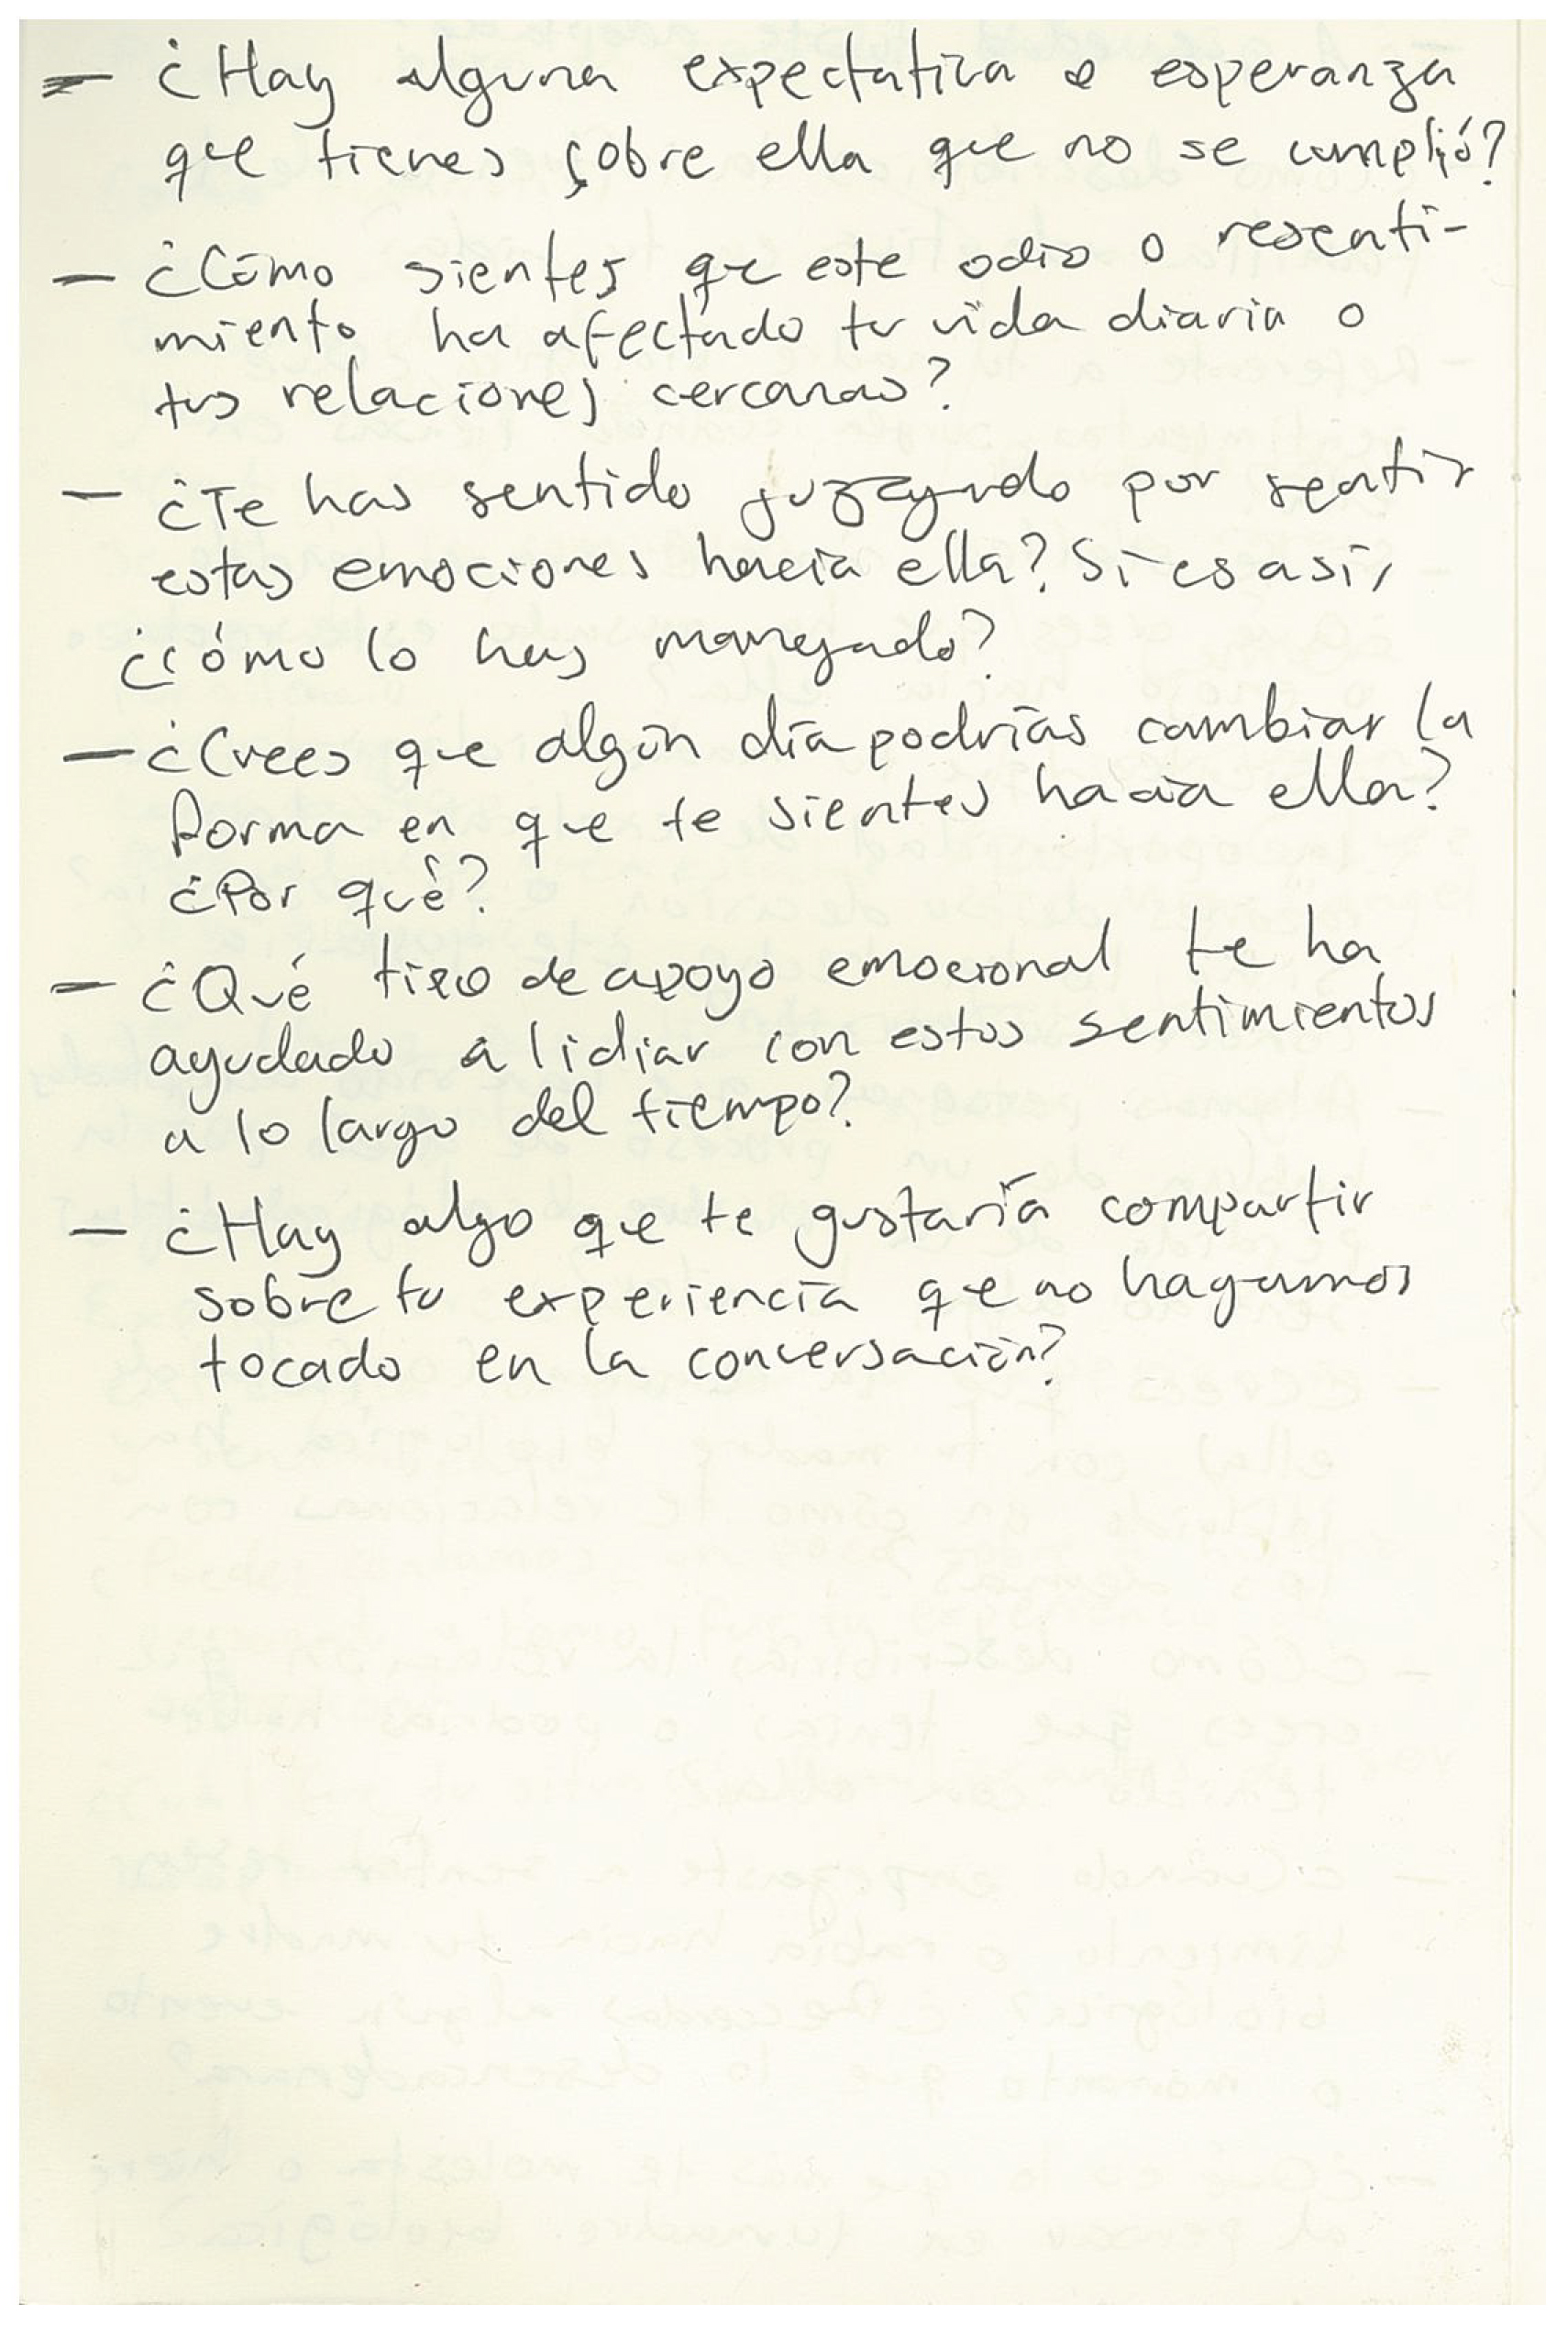 - ¿Hay alguna expectativa o esperanza
que tienes sobre ella que no se cumplió?
- ¿Cómo sientes que este odio o resenti-
miento ha afectado tu vida diaria o
tus relaciones cercanas?
- ¿Te has sentido juzgado por sentir
estas emociones hacia ella? Si es así,
¿cómo lo has manejado?
- ¿Crees que algún día podrías cambiar la
forma en que te sientes hacia ella?
¿Por qué?
- ¿Qué tipo de apoyo emocional te ha
ayudado a lidiar con estos sentimientos
a lo largo del tiempo?
- ¿Hay algo que te gustaría compartir
sobre tu experiencia que no hagamos
tocado en la conversación?